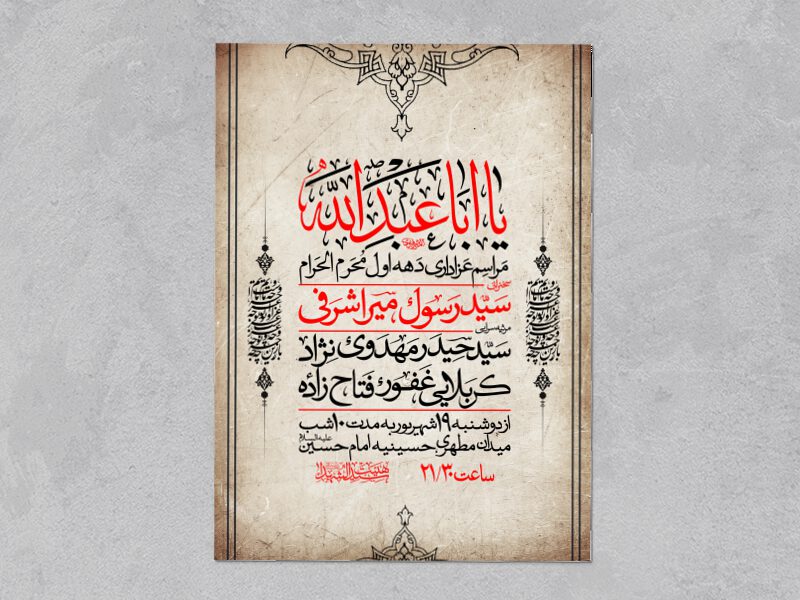 یا اباعبدالله
مراسم عزاداری دهه اول محرم الحرام
سخنرانی
سیّد رسول میراشرفی
مرثیه سرایی
سیّد حیدر مهدوی نژاد
کربلایی غفور فتاح زاده
از دوشنبه ۱۹ شهریور به مدت ۱۰ شب
میدان مطهری، حسینیه امام حسین علیه السلام
ساعت ۲۱/۳۰
هیئت سیدالشهدا